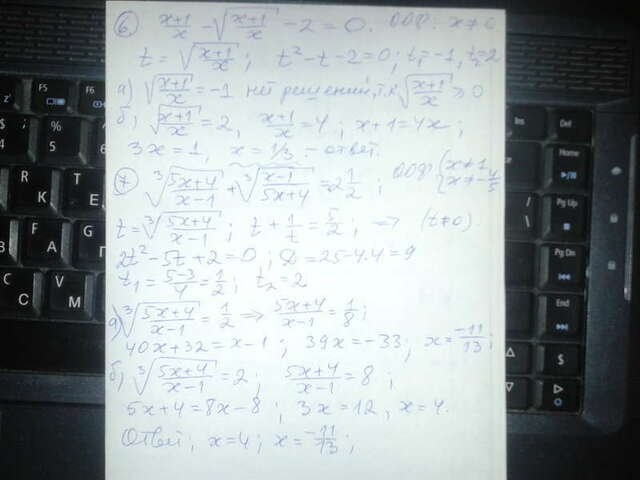 6) (x+1)/x - √((x+1)/x) - 2 = 0. ООФ: x ≠ 0
t = √((x+1)/x); t² - t - 2 = 0; t₁ = -1, t₂ = 2
а) √((x+1)/x) = -1 нет решений, т.к √((x+1)/x) ≥ 0
б) √((x+1)/x) = 2, (x+1)/x = 4; x+1 = 4x;
3x = 1, x = 1/3. - ответ.
7) ∛((5x+4)/(x-1)) + ∛((x-1)/(5x+4)) = 2 1/2; ООФ { x ≠ 1 x ≠ -4/5
t = ∛((5x+4)/(x-1)); t + 1/t = 5/2; => (t ≠ 0).
2t² - 5t + 2 = 0; D = 25 - 4·4 = 9
t₁ = (5-3)/4 = 1/2; t₂ = 2
а) ∛((5x+4)/(x-1)) = 1/2 => (5x+4)/(x-1) = 1/8;
40x + 32 = x - 1; 39x = -33; x = -11/13;
б) ∛((5x+4)/(x-1)) = 2; (5x+4)/(x-1) = 8;
5x + 4 = 8x - 8; 3x = 12, x = 4.
Ответ; x = 4; x = -11/13;
F5
F6
Ins
Del
Home
Pg Up
Pg Dn
End